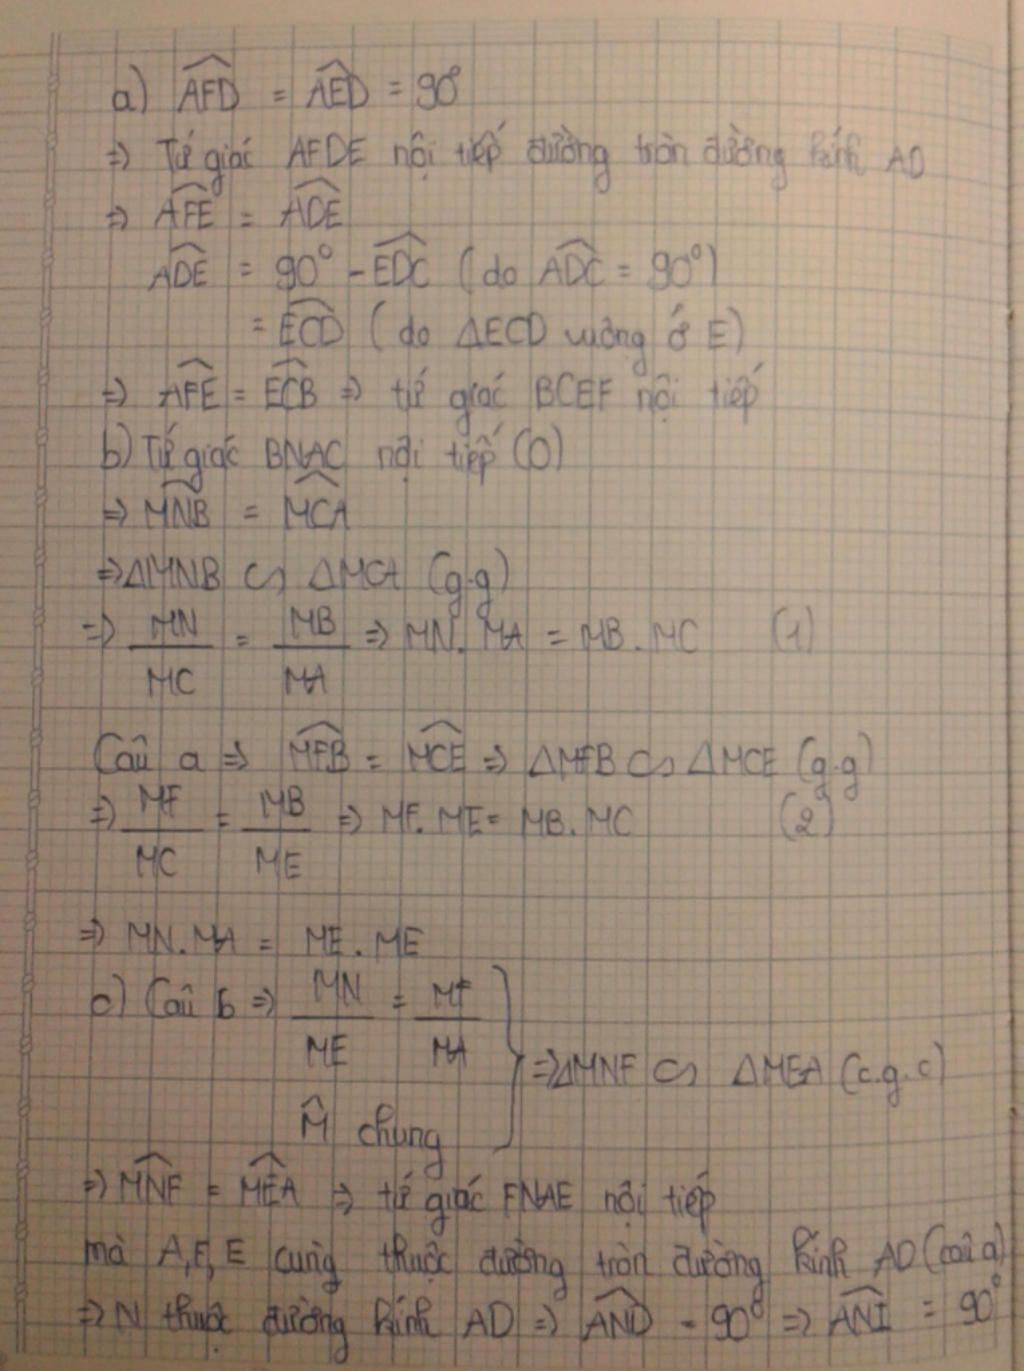 a) \widehat{AFD} = \widehat{AED} = 90°
=> Tứ giác AFDE nội tiếp đường tròn đường kính AD
=> \widehat{AFE} = \widehat{ADE}
\widehat{ADE} = 90° - \widehat{EDC} (do \widehat{ADC} = 90°)
= \widehat{ECD} (do ΔECD vuông ở E)
=> \widehat{AFE} = \widehat{ECB} => tứ giác BCEF nội tiếp
b) Tứ giác BNAC nội tiếp (O)
=> \widehat{MNB} = \widehat{MCA}
=> ΔMNB ∽ ΔMCA (g.g)
=> \frac{MN}{MC} = \frac{MB}{MA} => MN.MA = MB.MC (1)
Câu a => \widehat{MFB} = \widehat{MCE} => ΔMFB ∽ ΔMCE (g.g)
=> \frac{MF}{MC} = \frac{MB}{ME} => MF.ME = MB.MC (2)
=> MN.MA = ME.ME
c) Câu b => \frac{MN}{ME} = \frac{MF}{MA}
\widehat{M} chung
} => ΔMNF ∽ ΔMEA (c.g.c)
=> \widehat{MNF} = \widehat{MEA} => tứ giác FNAE nội tiếp
mà A,F,E cùng thuộc đường tròn đường kính AD (câu a)
=> N thuộc đường kính AD => \widehat{AND} = 90° => \widehat{ANI} = 90°